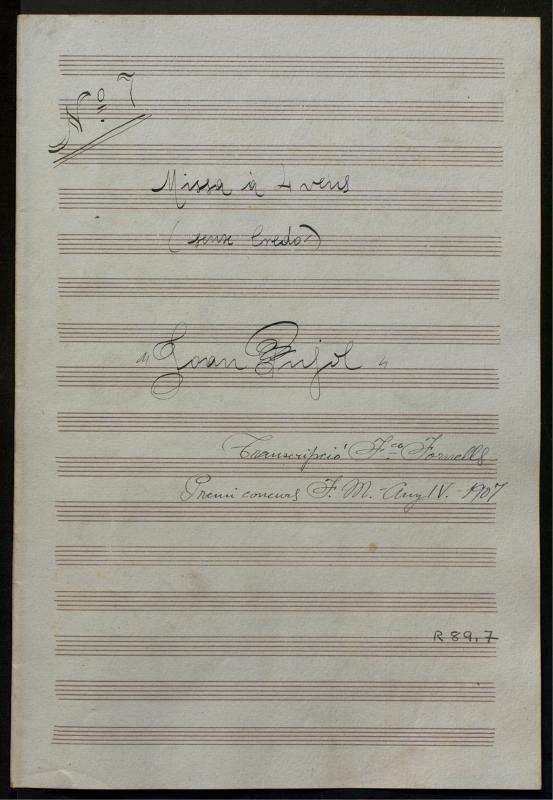 Nº 7
Missa à 4 veus
(sense Credo)
"Joan Pujol"
Transcripció Fco Fornells
Premi concurs F. M. - Any IV. - 1907
R 89,7